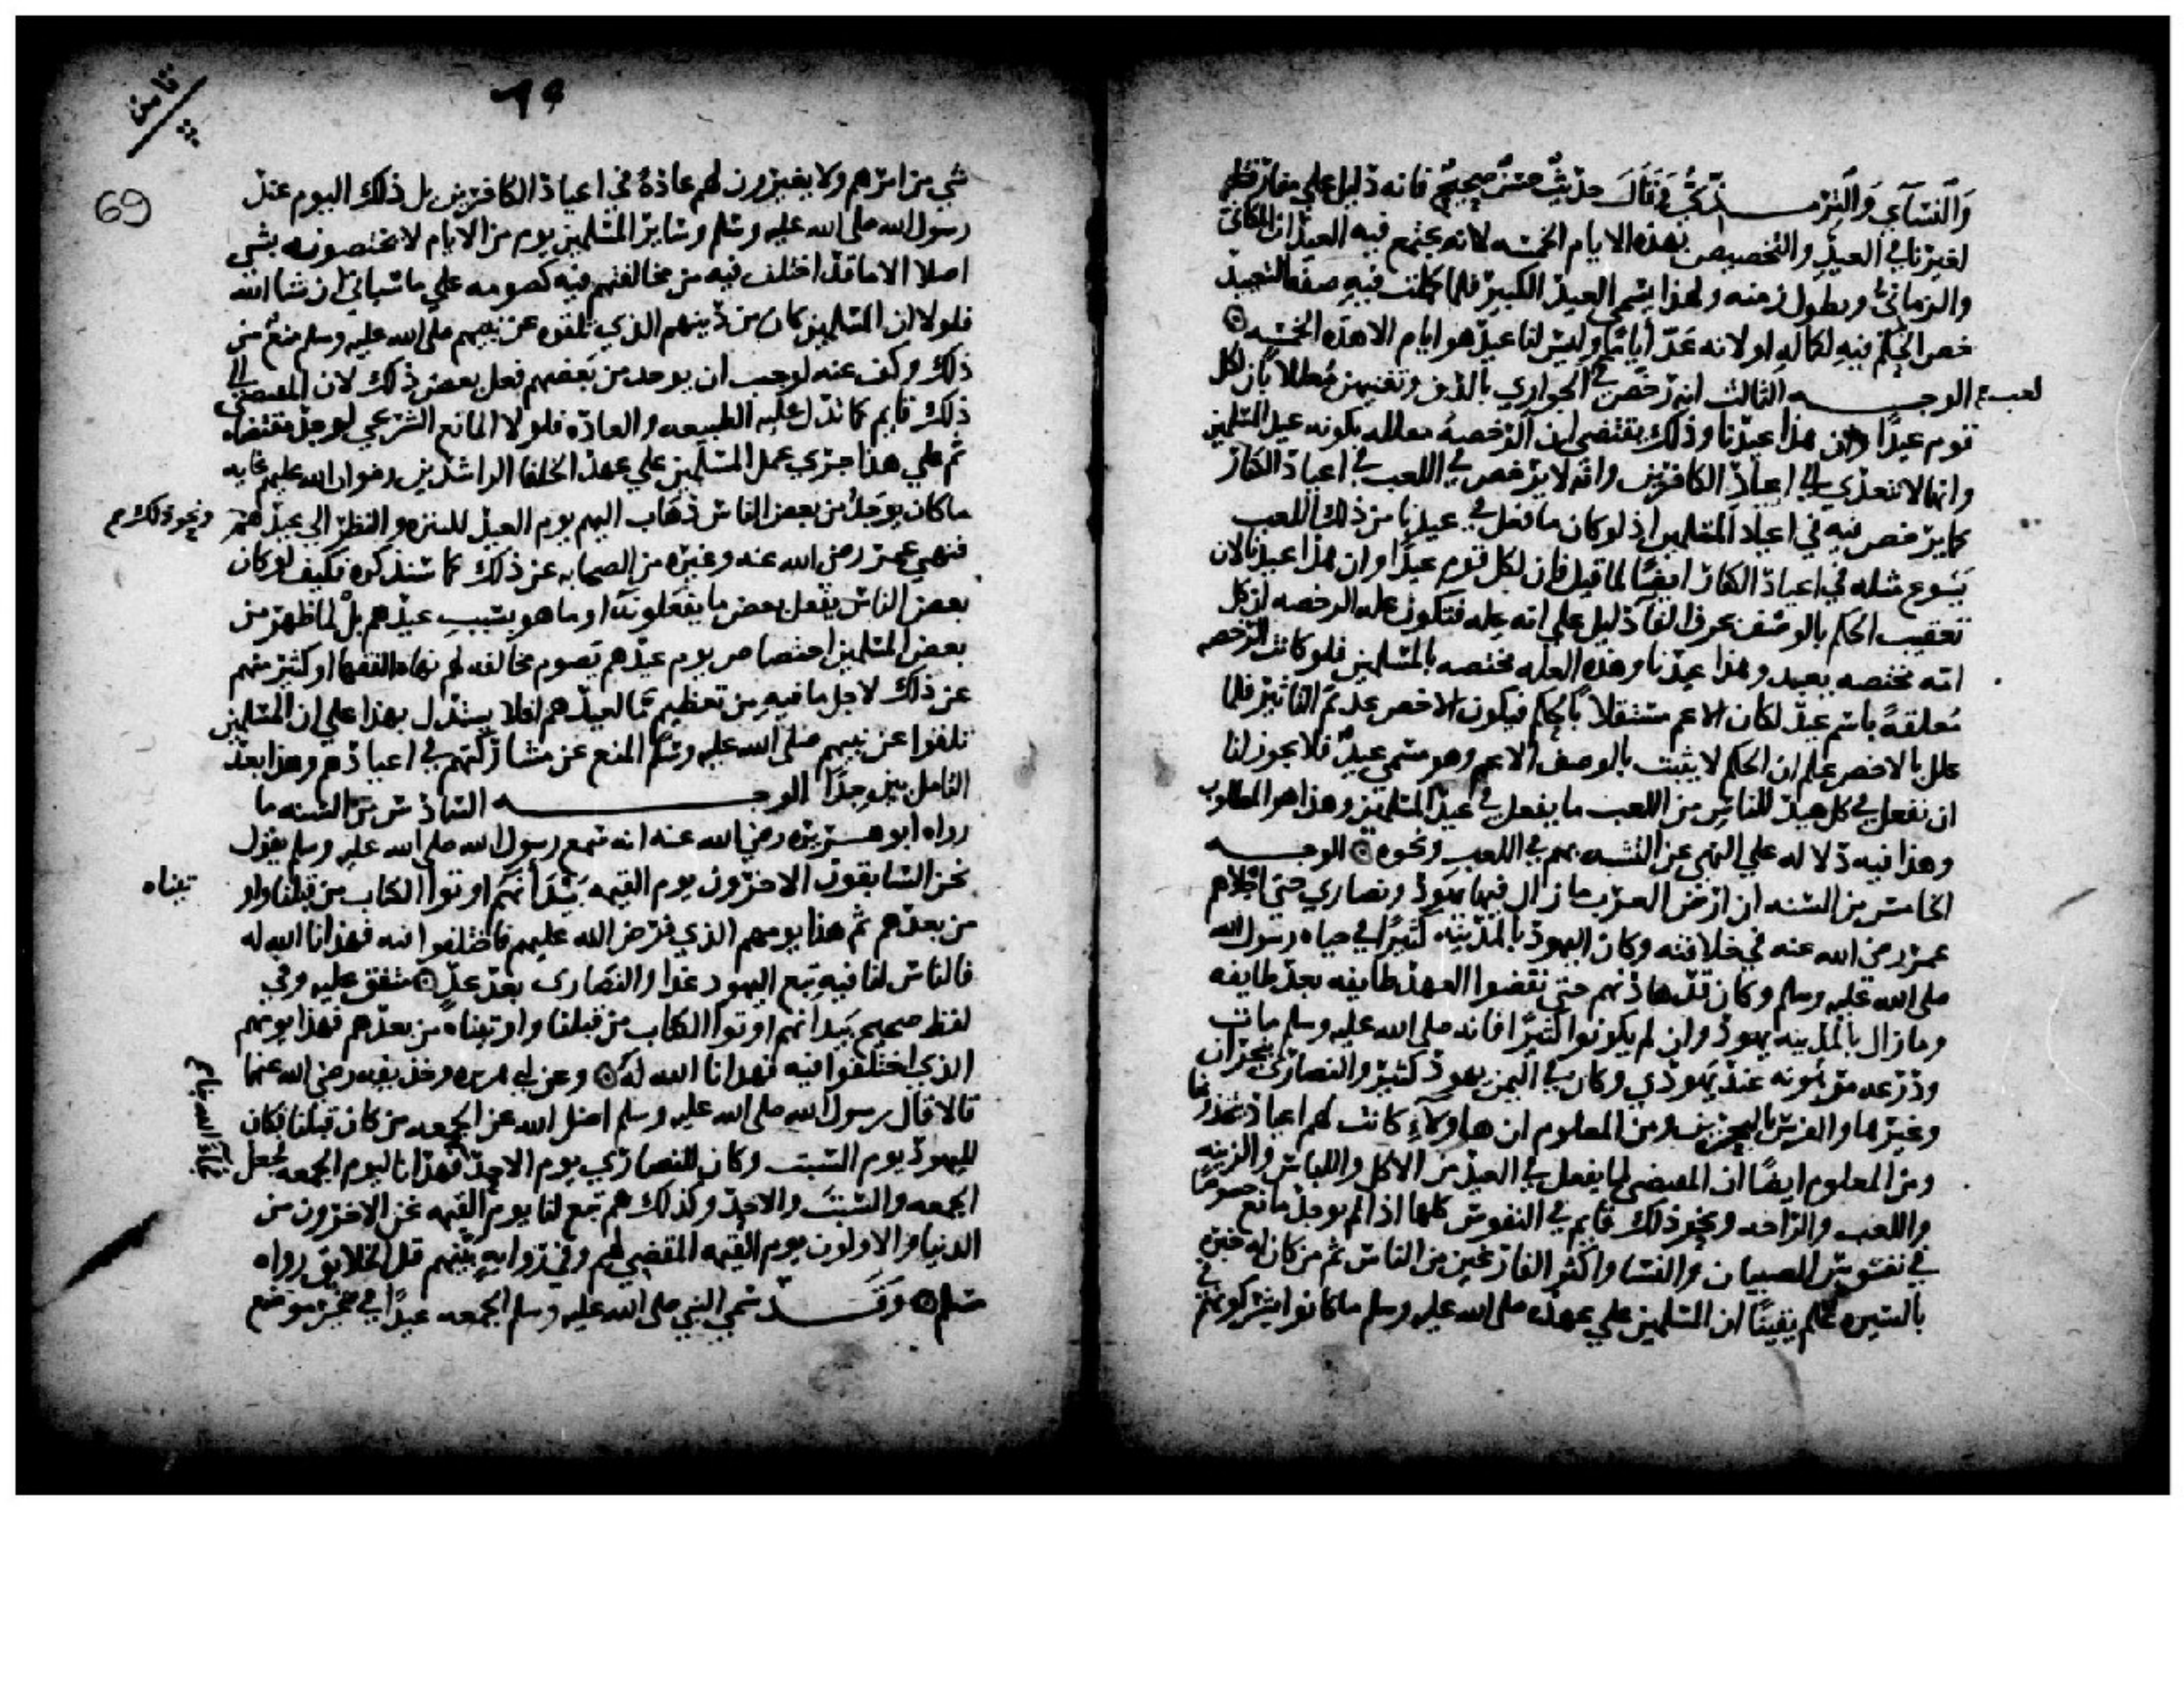 والنسآي والترمــذي وقال حديث حسن صحيح فانه دليل علي مفارقتنا
لغيرنا في العيد والتخصيص بهذه الايام الخمسه لانه يجتمع فيه العيدان المكاني
والزماني ويطول زمنه ولهذا يسمي العيد الكبير فلما كملت فيه صفة التعييد
حصر الحكم فيه لكماله او لانه عد اياما وليس لنا عيد هو ايام الا هذه الخمسه
الوجــه الثالث انه رخص في لعب الجواري بالدف وتغنيهن معللا بان لكل
قوم عيدا وان هذا عيدنا وذلك يقتضي ان الرخصه معلله بكونه عيد المسلمين
وانها لا تتعدي الي اعياد الكافرين وانه لا يرخص في اللعب في اعياد الكفار
كما يرخص فيه في اعياد المسلمين اذ لو كان ما فعل في عيدنا من ذلك اللعب
يسوغ مثله في اعياد الكفار ايضا لما قيل فان لكل قوم عيدا وان هذا عيدنا لان
تعقيب الحكم بالوصف بحرف الفا دليل علي انه عله فتكون عله الرخصه ان كل
امه مختصه بعيد وهذا عيدنا وهذه العله مختصه بالمسلمين فلو كانت الرخصه
معلقة باسم عيد لكان الاعم مستقلا بالحكم فيكون الاخص عديم التاثير فلما
علل بالاخص علم ان الحكم لا يثبت بالوصف الاعم وهو مسمي عيد فلا يجوز لنا
ان نفعل في كل عيد للناس من اللعب ما يفعل في عيد المسلمين وهذا هو المطلوب
وهذا فيه دلاله علي النهي عن التشبه بهم في اللعب ونحوه الوجــه
الخامس من السنه ان ارض العرب ما زال فيها يهود ونصاري حتي اجلاهم
عمر رضي الله عنه في خلافته وكان اليهود بالمدينه كثيرا في حياه رسول الله
صلي الله عليه وسلم وكان قد هادنهم حتي نقضوا العهد طايفه بعد طايفه
وما زال بالمدينه يهود وان لم يكونوا كثيرا فانه صلي الله عليه وسلم مات
ودرعه مرهونه عند يهودي وكان في اليمن يهود كثير والنصاري بنجران
وغيرها والفرس بالبحرين ومن المعلوم ان هاولاء كانت لهم اعياد يتخذونها
ومن المعلوم ايضا ان المقتضي لما يفعل في العيد من الاكل واللباس والزينه
واللعب والراحه ونحو ذلك قايم في النفوس كلها اذا لم يوجد مانع خصوصا
في نفوس الصبيان والنسا واكثر الفارغين من الناس ثم من كان له خبره
بالسيره علم يقينا ان المسلمين علي عهده صلي الله عليه وسلم ما كانوا يشركونهم في
ثامن
٦٩
69
شي من امرهم ولا يغيرون لهم عادة في اعياد الكافرين بل ذلك اليوم عند
رسول الله صلي الله عليه وسلم وساير المسلمين يوم من الايام لا يختصونه بشي
اصلا الا ما قد اختلف فيه من مخالفتهم فيه كصومه علي ما سياتي ان شا الله
فلولا ان المسلمين كان من دينهم الذي تلقوه عن نبيهم صلي الله عليه وسلم منع من
ذلك وكف عنه لوجب ان يوجد من بعضهم فعل بعض ذلك لان المقتضي الي
ذلك قايم كما تدل عليه الطبيعه والعاده فلولا المانع الشرعي لوجد مقتضاه
ثم علي هذا جري عمل المسلمين علي عهد الخلفا الراشدين رضوان الله عليهم غايه
ما كان يوجد من بعض الناس ذهاب اليهم يوم العيد للتنزه والنظر الي عيدهم ونحو ذلك
فنهي عمر رضي الله عنه وغيره من الصحابه عن ذلك كما سنذكره فكيف لو كان
بعض الناس يفعل بعض ما يفعلونه او ما هو بسبب عيدهم بل لما ظهر من
بعض المسلمين اختصاص يوم عيدهم بصوم مخالفه لهم نهاه الفقها او كثير منهم
عن ذلك لاجل ما فيه من تعظيم ما لعيدهم افلا يستدل بهذا علي ان المسلمين
تلقوا عن نبيهم صلي الله عليه وسلم المنع عن مشاركتهم في اعيادهم وهذا بعد
التامل بين جدا الوجــه السادس من السنه ما
رواه ابو هــريره رضي الله عنه انه سمع رسول الله صلي الله عليه وسلم يقول
نحن السابقون الاخرون يوم القيمه بيد انهم اوتوا الكتاب من قبلنا واو تيناه
من بعدهم ثم هذا يومهم الذي فرض الله عليهم فاختلفوا فيه فهدانا الله له
فالناس لنا فيه تبع اليهود غدا والنصارى بعد غد متفق عليه وفي
لفظ صحيح بيد انهم اوتوا الكتاب من قبلنا واوتيناه من بعدهم فهذا يومهم
الذي اختلفوا فيه فهدانا الله له وعن ابي هريره وحذيفه رضي الله عنهما
قالا قال رسول الله صلي الله عليه وسلم اضل الله عن الجمعه من كان قبلنا فكان
لليهود يوم السبت وكان للنصاري يوم الاحد فجآء الله بنا فهدانا ليوم الجمعه فجعل
الجمعه والسبت والاحد وكذلك هم تبع لنا يوم القيمه نحن الاخرون من
الدنيا والاولون يوم القيمه المقضي لهم وفي روايه بينهم قبل الخلايق رواه
مسلم وقــد سمي النبي صلي الله عليه وسلم الجمعه عيدا في غير موضع